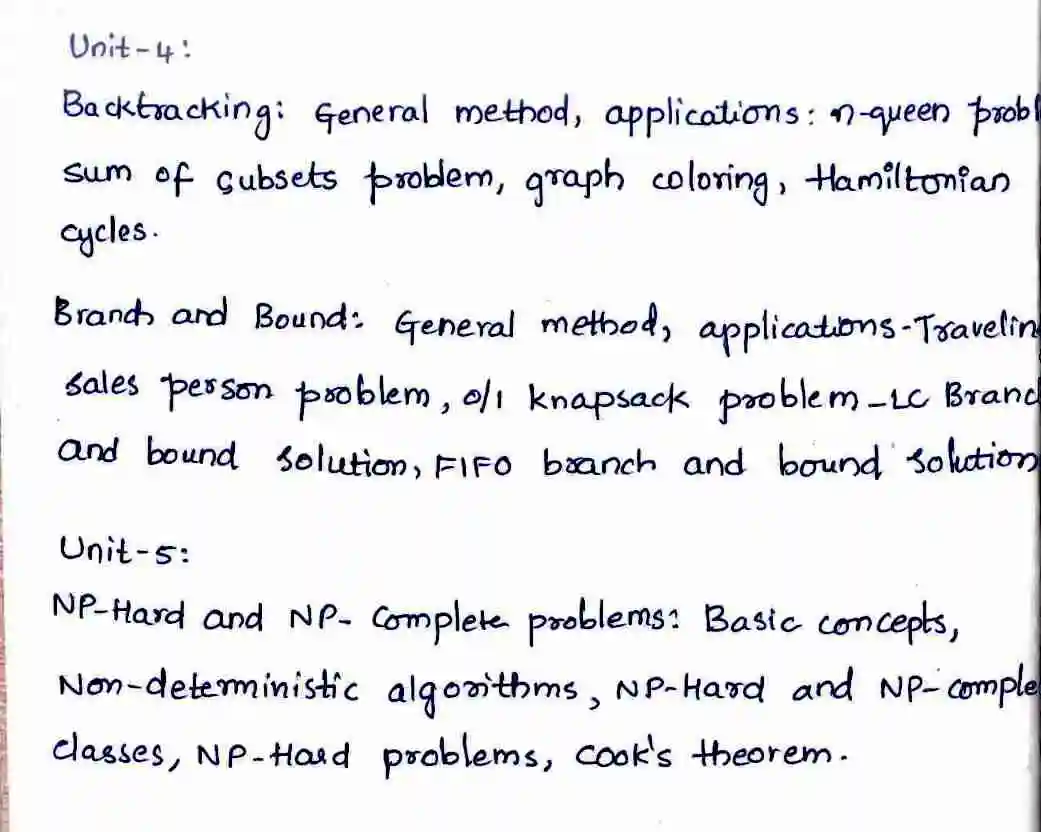 Unit-4:
Backtracking: General method, applications: n-queen probl
sum of subsets problem, graph coloring, Hamiltonian
cycles.
Branch and Bound: General method, applications-Travelin
sales person problem, 0/1 knapsack problem-LC Branc
and bound solution, FIFO branch and bound solution
Unit-5:
NP-Hard and NP-Complete problems: Basic concepts,
Non-deterministic algorithms, NP-Hard and NP-comple
classes, NP-Hard problems, Cook's theorem.